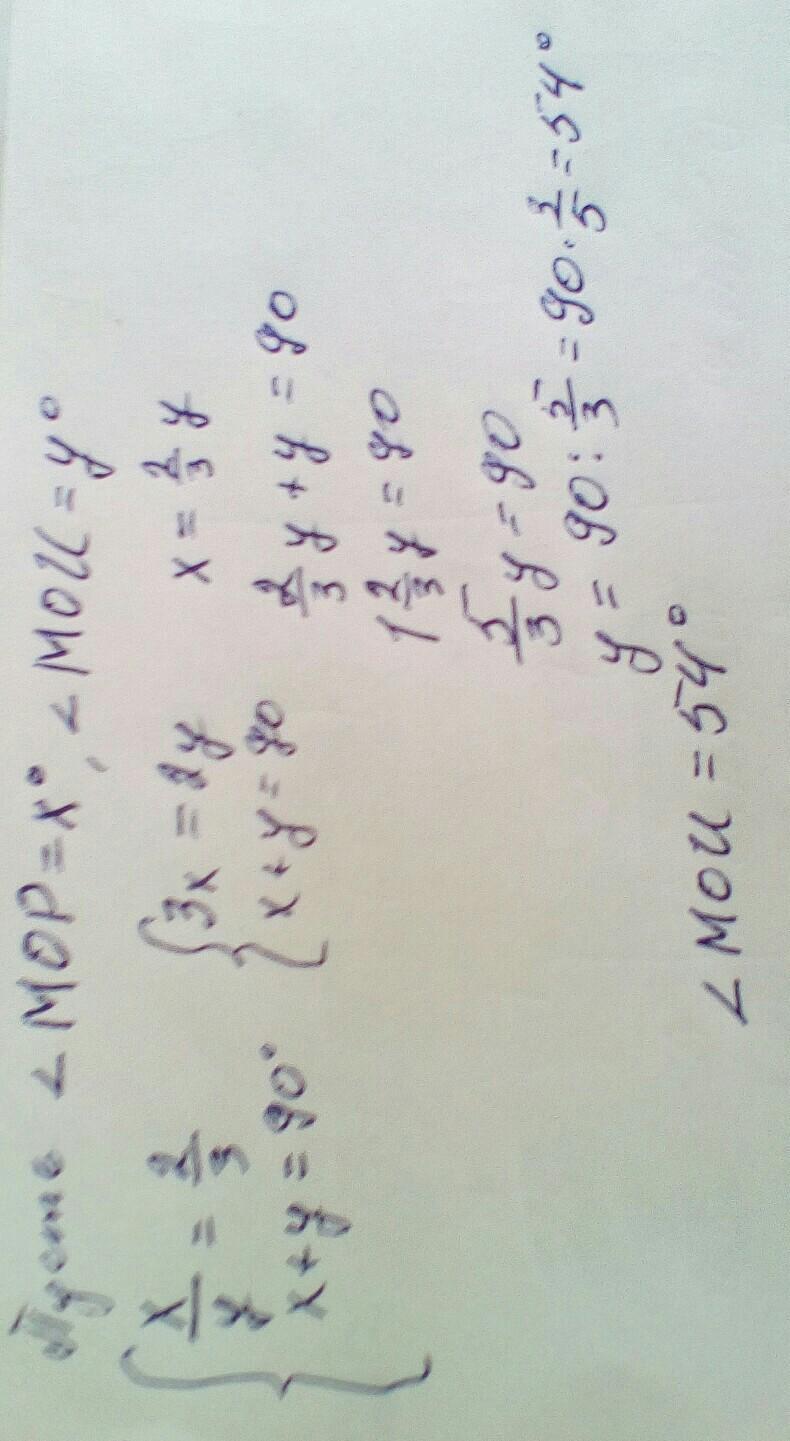 Пусть ∠MOP = x°, ∠MOИ = y°
{ x/y = 2/3   { 3x = 2y   x = 2/3 y
x + y = 90°   x + y = 90   2/3 y + y = 90
1 2/3 y = 90
5/3 y = 90
y = 90 : 5/3 = 90 · 3/5 = 54°
∠MOИ = 54°